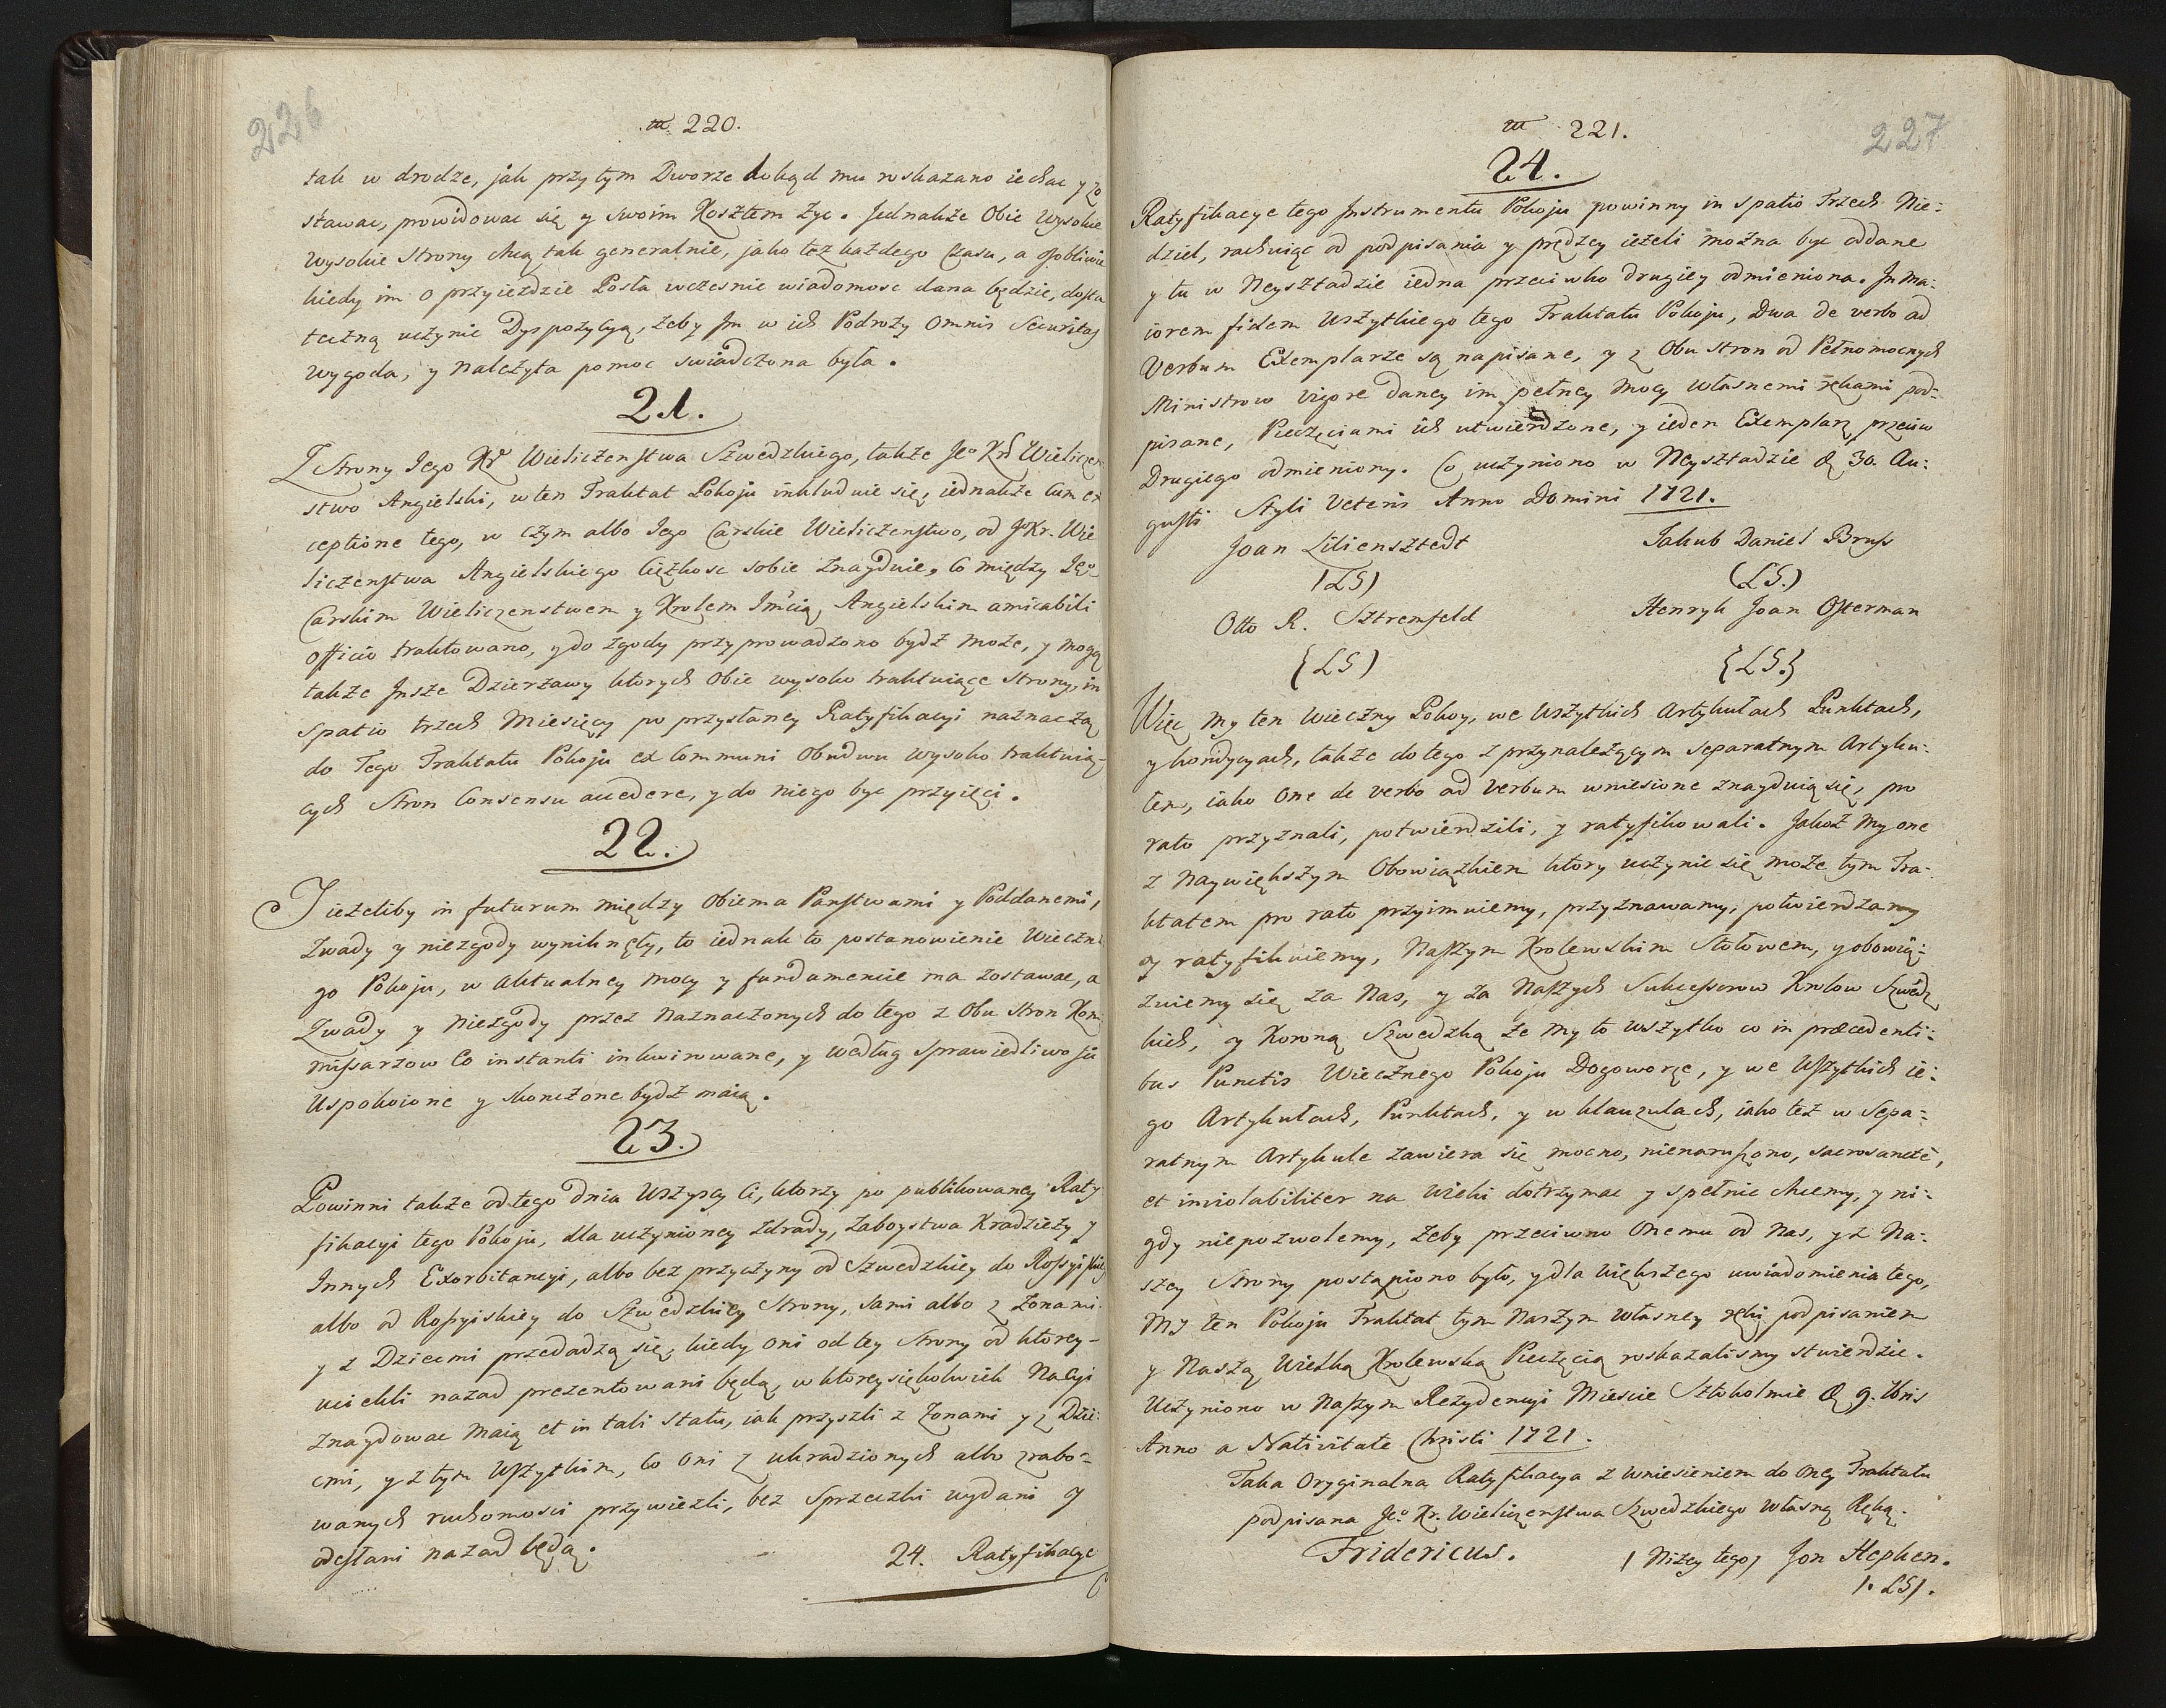 226
220.
tak w drodze, jak przy tym Dworze dokąd mu roskazano iechac y zo
stawac, prowidowac się y swoim Kosztem zyc. Jednakże Obie Wysokie
Wysokie Strony chcą tak generalnie, jako też każdego Czasu, a osobliwie
kiedy im o przyieździe Posła wcześnie wiadomosc dana będzie, dosta
teczną uczynic Dyspozycyą, żeby Im w ich Podroży Omnis Securitas
wygoda, y należyta pomoc swiadczona była.
21.
Z Strony Jego Kr Wieliczenstwa Szwedzkiego, takze Je° Kr Wieliczen
stwo Angielski, w ten Traktat Pokoju inkluduie się, iednakże cum ex
ceptione tego, w czym albo Jego Carskie Wieliczenstwo, od J° Kr. Wie
liczenstwa Angielskiego Cięzkosc sobie znayduie, Co między Jego
Carskim Wieliczenstwem y Krolem Jmcią Angielskim amicabili
officio traktowano, y do zgody przyprowadzono bydź moze, y mogą
takze Insze Dzierżawy ktorych Obie wysoko traktuiące Strony, in
spatio trzech Miesięcy po przysłaney Ratyfikacyi naznaczą
do Tego Traktatu Pokoju ex Communi Obudwu wysoko traktuią-
cych Stron Consensu accedere, y do niego byc przyięci.
22.
Jieżeliby in futurum między Obiema Panstwami y Poddanemi,
Zwady y niezgody wyniknęły, to iednak to postanowienie Wieczne
go Pokoju, w Aktualney mocy y fundamencie ma zostawac, a
Zwady y niezgody przez Naznaczonych do tego z Obu Stron Kom
missarzow Co instanti inkwirowane, y według sprawiedliwosci
Uspokoione y skonczone bydź maią.
23.
Powinni takze od tego dnia Wszyscy Ci, ktorzy po publikowaney Raty
fikacyi tego Pokoju, dla uczynioney zdrady, zaboystwa Kradzieży y
Innych Exorbitancyi, albo bez przyczyny od Szwedzkiey do Rossyiskiey
albo od Rossyiskiey do Szwedzkiey Strony, sami albo z żonami
y z Dziecmi przedadzą się, kiedy oni od tey Strony od ktorey-
uciekli nazad prezentowani będą, w ktorey siękolwiek Nacyi
znaydowac maią et in tali statu, iak przyszli z żonami y z Dzie:
cmi, y z tym Wszytkim, co oni z ukradzionych albo zrabo-
wanych ruchomosci przywiezli, bez sprzeczki wydani y
odesłani nazad będą.
24. Ratyfikacye
227
221.
24.
Ratyfikacye tego Instrumentu Pokoju powinny in spatio Trzech Nie:
dziel, rachuiąc od podpisania y prędzey ieżeli można byc oddane
y tu w Neysztadzie iedna przeciwko drugiey odmieniona. In Ma:
iorem fidem Wszytkiego tego Traktatu Pokoju, Dwa de verbo ad
Verbum Exemplarze są napisane, y z Obu stron od Pełnomocnych
Ministrow vigore daney im pełney Mocy własnemi rękami pod-
pisane, Pieczęciami ich utwierdzone, y ieden Exemplarz przeciw
Drugiego odmieniony. Co uczyniono w Neysztadzie D 30. Au:
gusti Styli Veteris Anno Domini 1721.
Joan Liliensztedt Jakub Daniel Bruss
(LS) (LS.)
Otto R. Sztremfeld Henryk Joan Osterman
(LS) (LS.)
Więc My ten Wieczny Pokoy, we Wszytkich Artykułach Punktach,
y kondycyach, także do tego z przynależącym separatnym Artyku:
łem, iako One de verbo ad Verbum wniesione znayduią się, pro
rato przyznali, potwierdzili, y ratyfikowali. Jakoż My one
z Naywiększym Obowiązkiem ktory uczynic się może tym Tra-
ktatem pro rato przyimuiemy, przyznawamy, potwierdzamy
y ratyfikuiemy, Naszym Krolewskim Słołowem, y obowią:
zuiemy się za Nas, y za Naszych Sukcessorow Krolow Szwedz
kich, y Koroną Szwedzką że My to wszytko co in præcedenti:
bus Punctis Wiecznego Pokoju Dogoworze, y we Wszytkich ie:
go Artykułach, Punktach, y w klauzulach, iako też w Sepa:
ratnym Artykule zawiera się mocno, nienaruszono, sacrosancte,
et inviolabiliter na Wieki dotrzymac y spełnic chcemy, y ni:
gdy niepozwolemy, żeby przeciwno Onemu od Nas, y z Na:
szey Strony postąpiono było, y dla większego uwiadomienia tego,
My ten Pokoju Traktat tym Naszym własney ręki podpisaniem
y Naszą Wielką Krolewską Pieczęcią roskazalismy stwierdzic.
Uczyniono w Naszym Rezydencyi Miescie Sztokolmie D 9. 7bris
Anno a Nativitate Christi 1721.
Taka Oryginalna Ratyfikacya z wniesieniem do Oney Traktatu
podpisana Je° Kr. Wieliczenstwa Szwedzkiego własną Ręką.
Fridericus. (Niżey tego) Jon Hepken.
(LS).